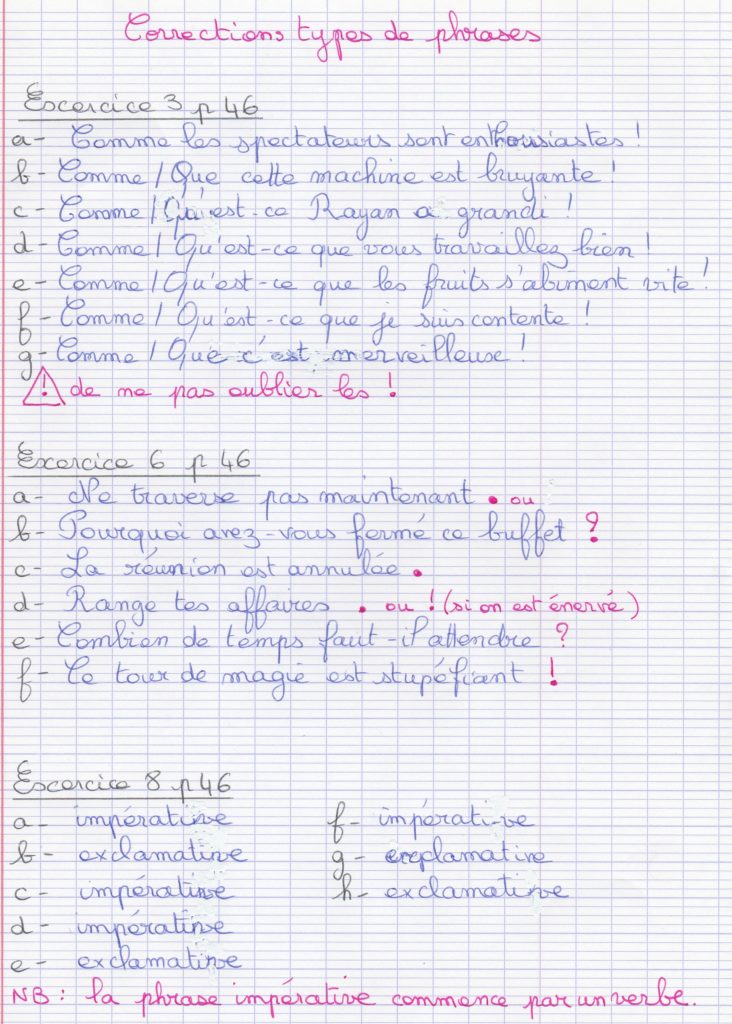 Corrections types de phrases
Exercice 3 p 46
a - Comme les spectateurs sont enthousiastes !
b - Comme / Que cette machine est bruyante !
c - Comme / Qu'est-ce Rayan a grandi !
d - Comme / Qu'est-ce que vous travaillez bien !
e - Comme / Qu'est-ce que les fruits s'abîment vite !
f - Comme / Qu'est-ce que je suis contente !
g - Comme / Que c'est merveilleuse !
! de ne pas oublier les !
Exercice 6 p 46
a - Ne traverse pas maintenant . ou
b - Pourquoi avez-vous fermé ce buffet ?
c - La réunion est annulée .
d - Range tes affaires . ou ! (si on est énervé)
e - Combien de temps faut-il attendre ?
f - Ce tour de magie est stupéfiant !
Exercice 8 p 46
a - impérative f - impérative
b - exclamative g - exclamative
c - impérative h - exclamative
d - impérative
e - exclamative
NB : la phrase impérative commence par un verbe.